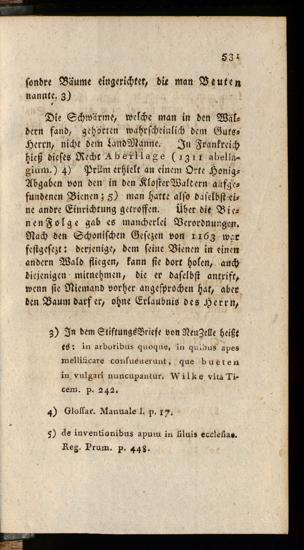 531
sondre Bäume eingerichtet, die man Beuten
nannte. 3)
Die Schwärme, welche man in den Wäl-
dern fand, gehörten wahrscheinlich dem Guts-
Herrn, nicht dem LandManne. In Frankreich
hieß dieses Recht Abeillage (1311 abella-
gium.) 4) Prüm erhielt an einem Orte Honig-
Abgaben von den in den KlosterWäldern aufge-
fundenen Bienen; 5) man hatte also daselbst ei-
ne andre Einrichtung getroffen. Über die Bie-
nenFolge gab es mancherlei Verordnungen.
Nach den Schonischen Gesezen von 1163 war
festgesezt: derjenige, dem seine Bienen in einen
andern Wald fliegen, kann sie dort holen, auch
diejenigen mitnehmen, die er daselbst antrift,
wenn sie Niemand vorher angesprochen hat, aber
den Baum darf er, ohne Erlaubnis des Herrn,
3) In dem StiftungsBriefe von NeuZelle heißt
es: in arboribus quoque, in quibus apes
mellificare consueuerunt, que bueten
in vulgari nuncupantur. Wilke vita Ti-
cem. p. 242.
4) Glossar. Manuale I. p. 17.
5) de inventionibus apum in siluis ecclesiae.
Reg. Prum. p. 448.